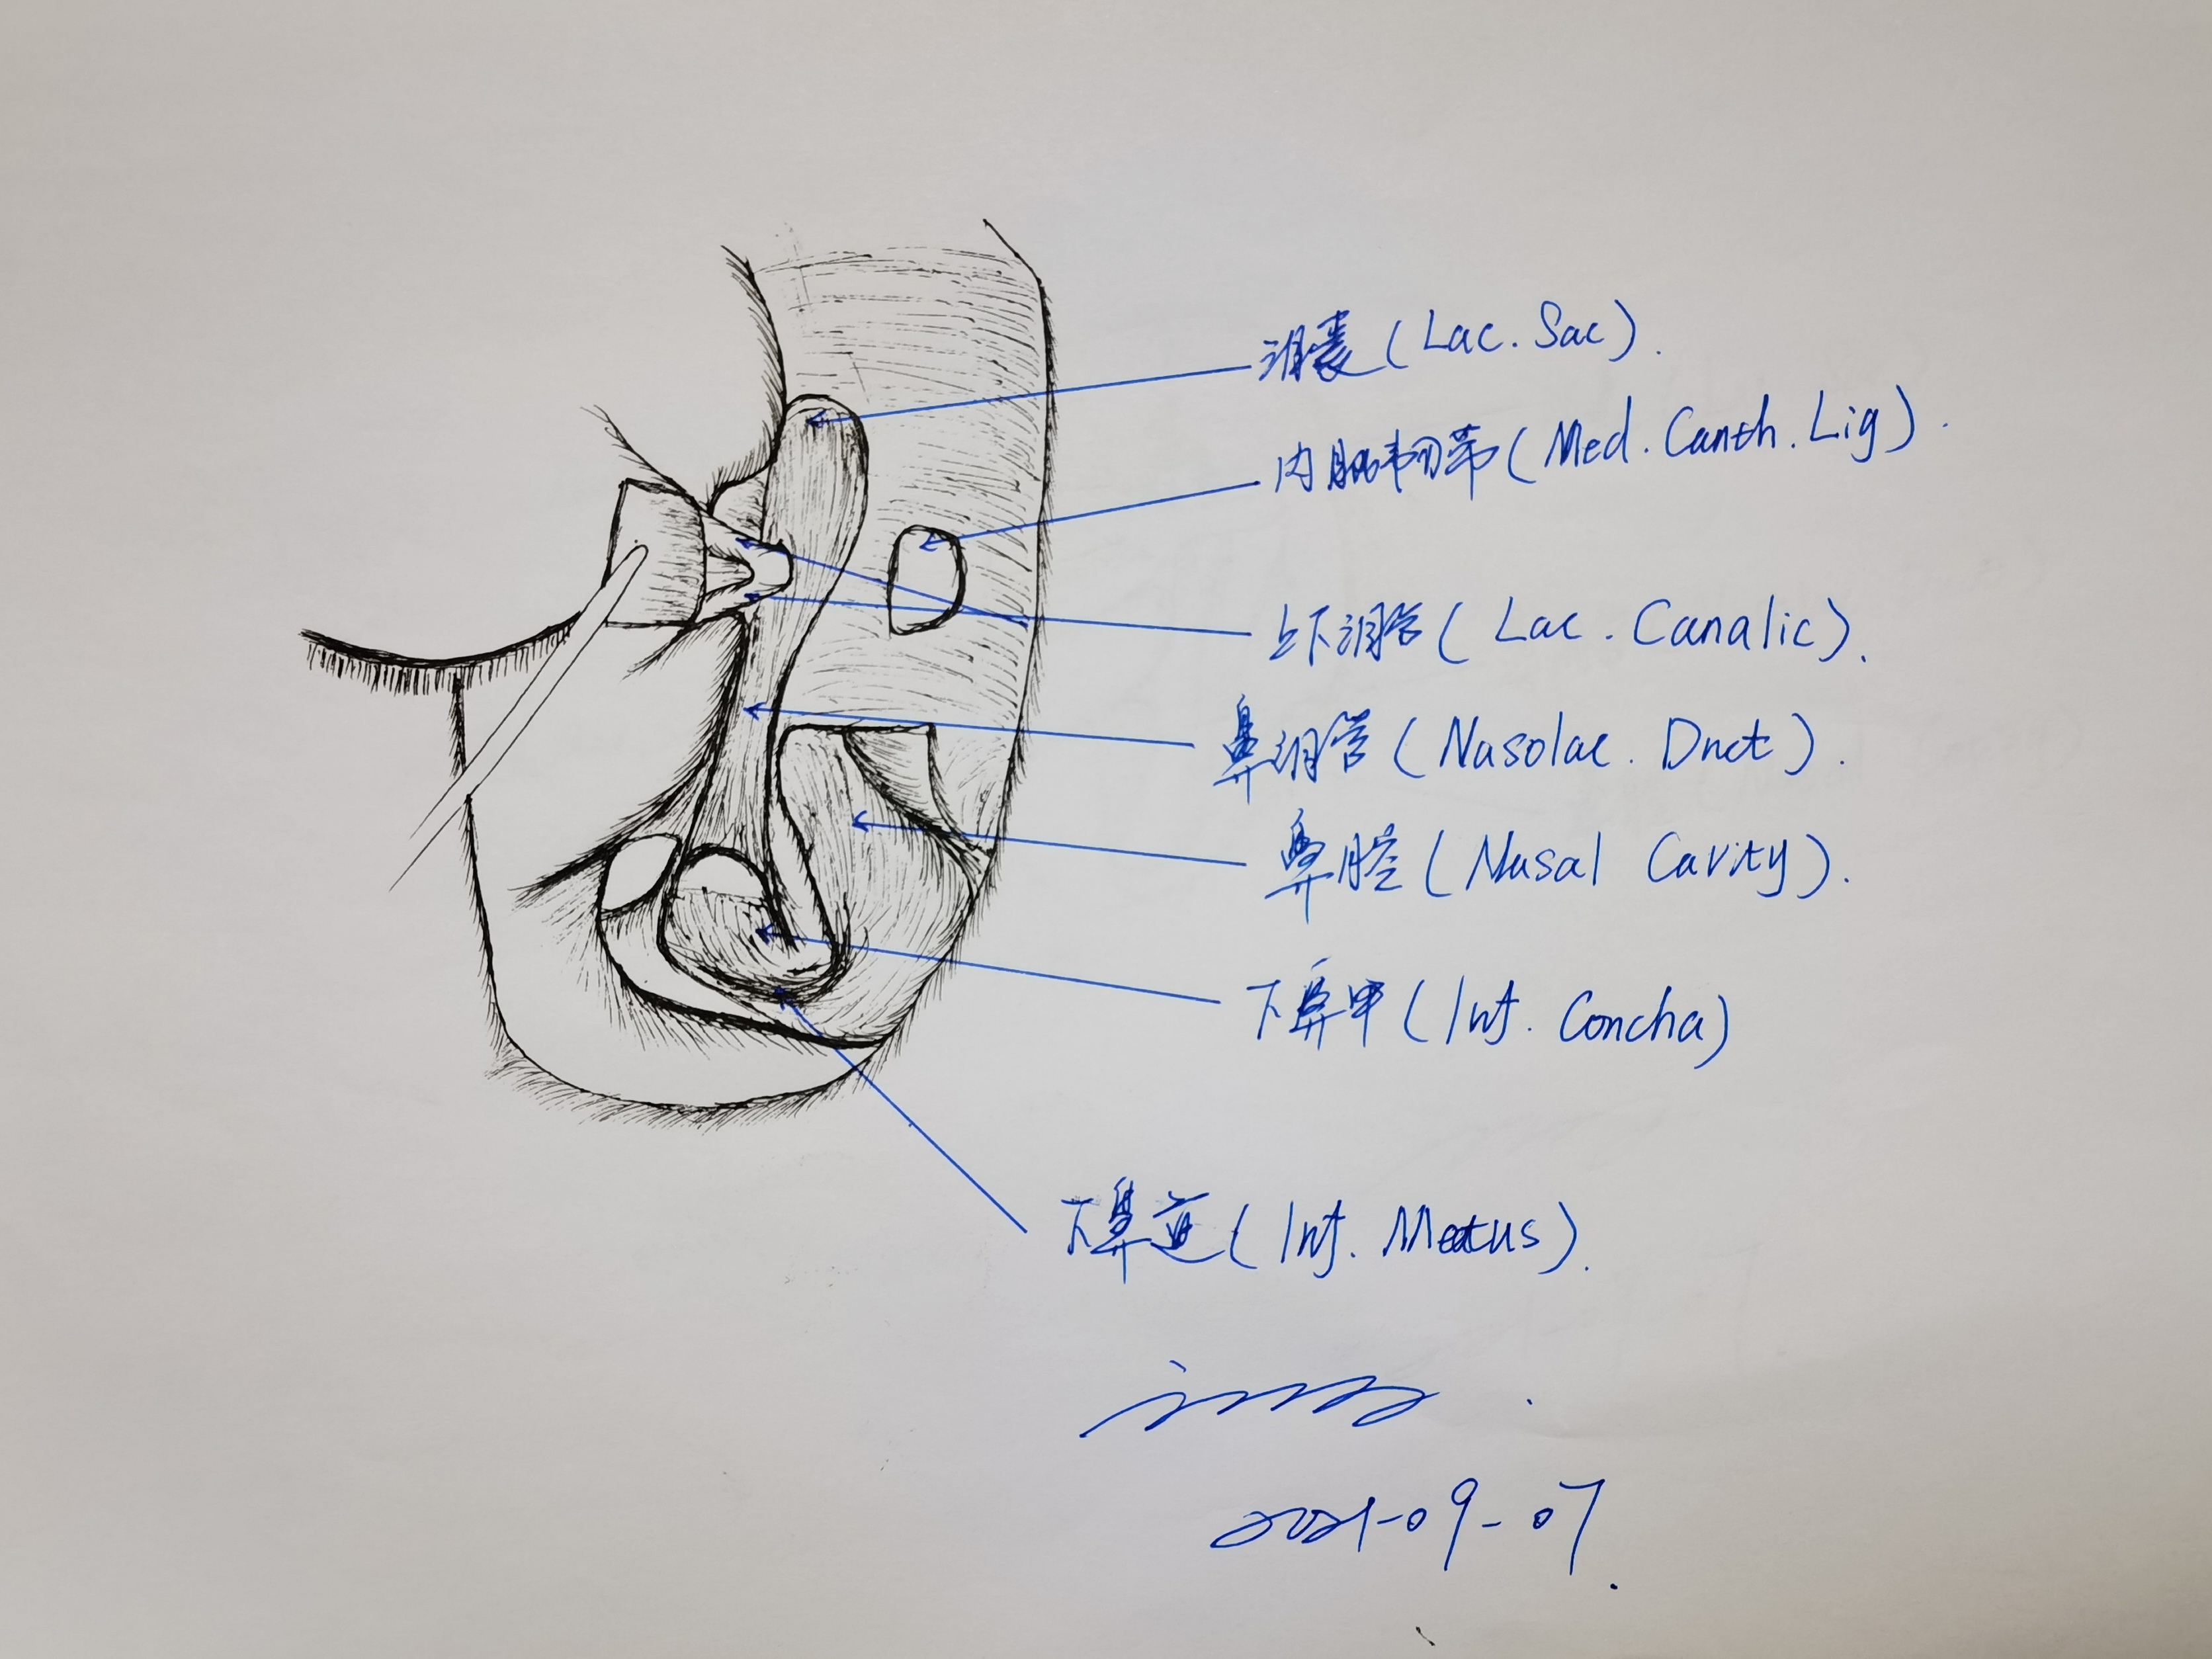 泪囊(Lac. Sac).
内眦韧带(Med. Canth. Lig).
上下泪管(Lac. Canalic).
鼻泪管(Nasolac. Duct).
鼻腔(Nasal Cavity).
下鼻甲(Inf. Concha)
下鼻道(Inf. Meatus).
2021-09-07.